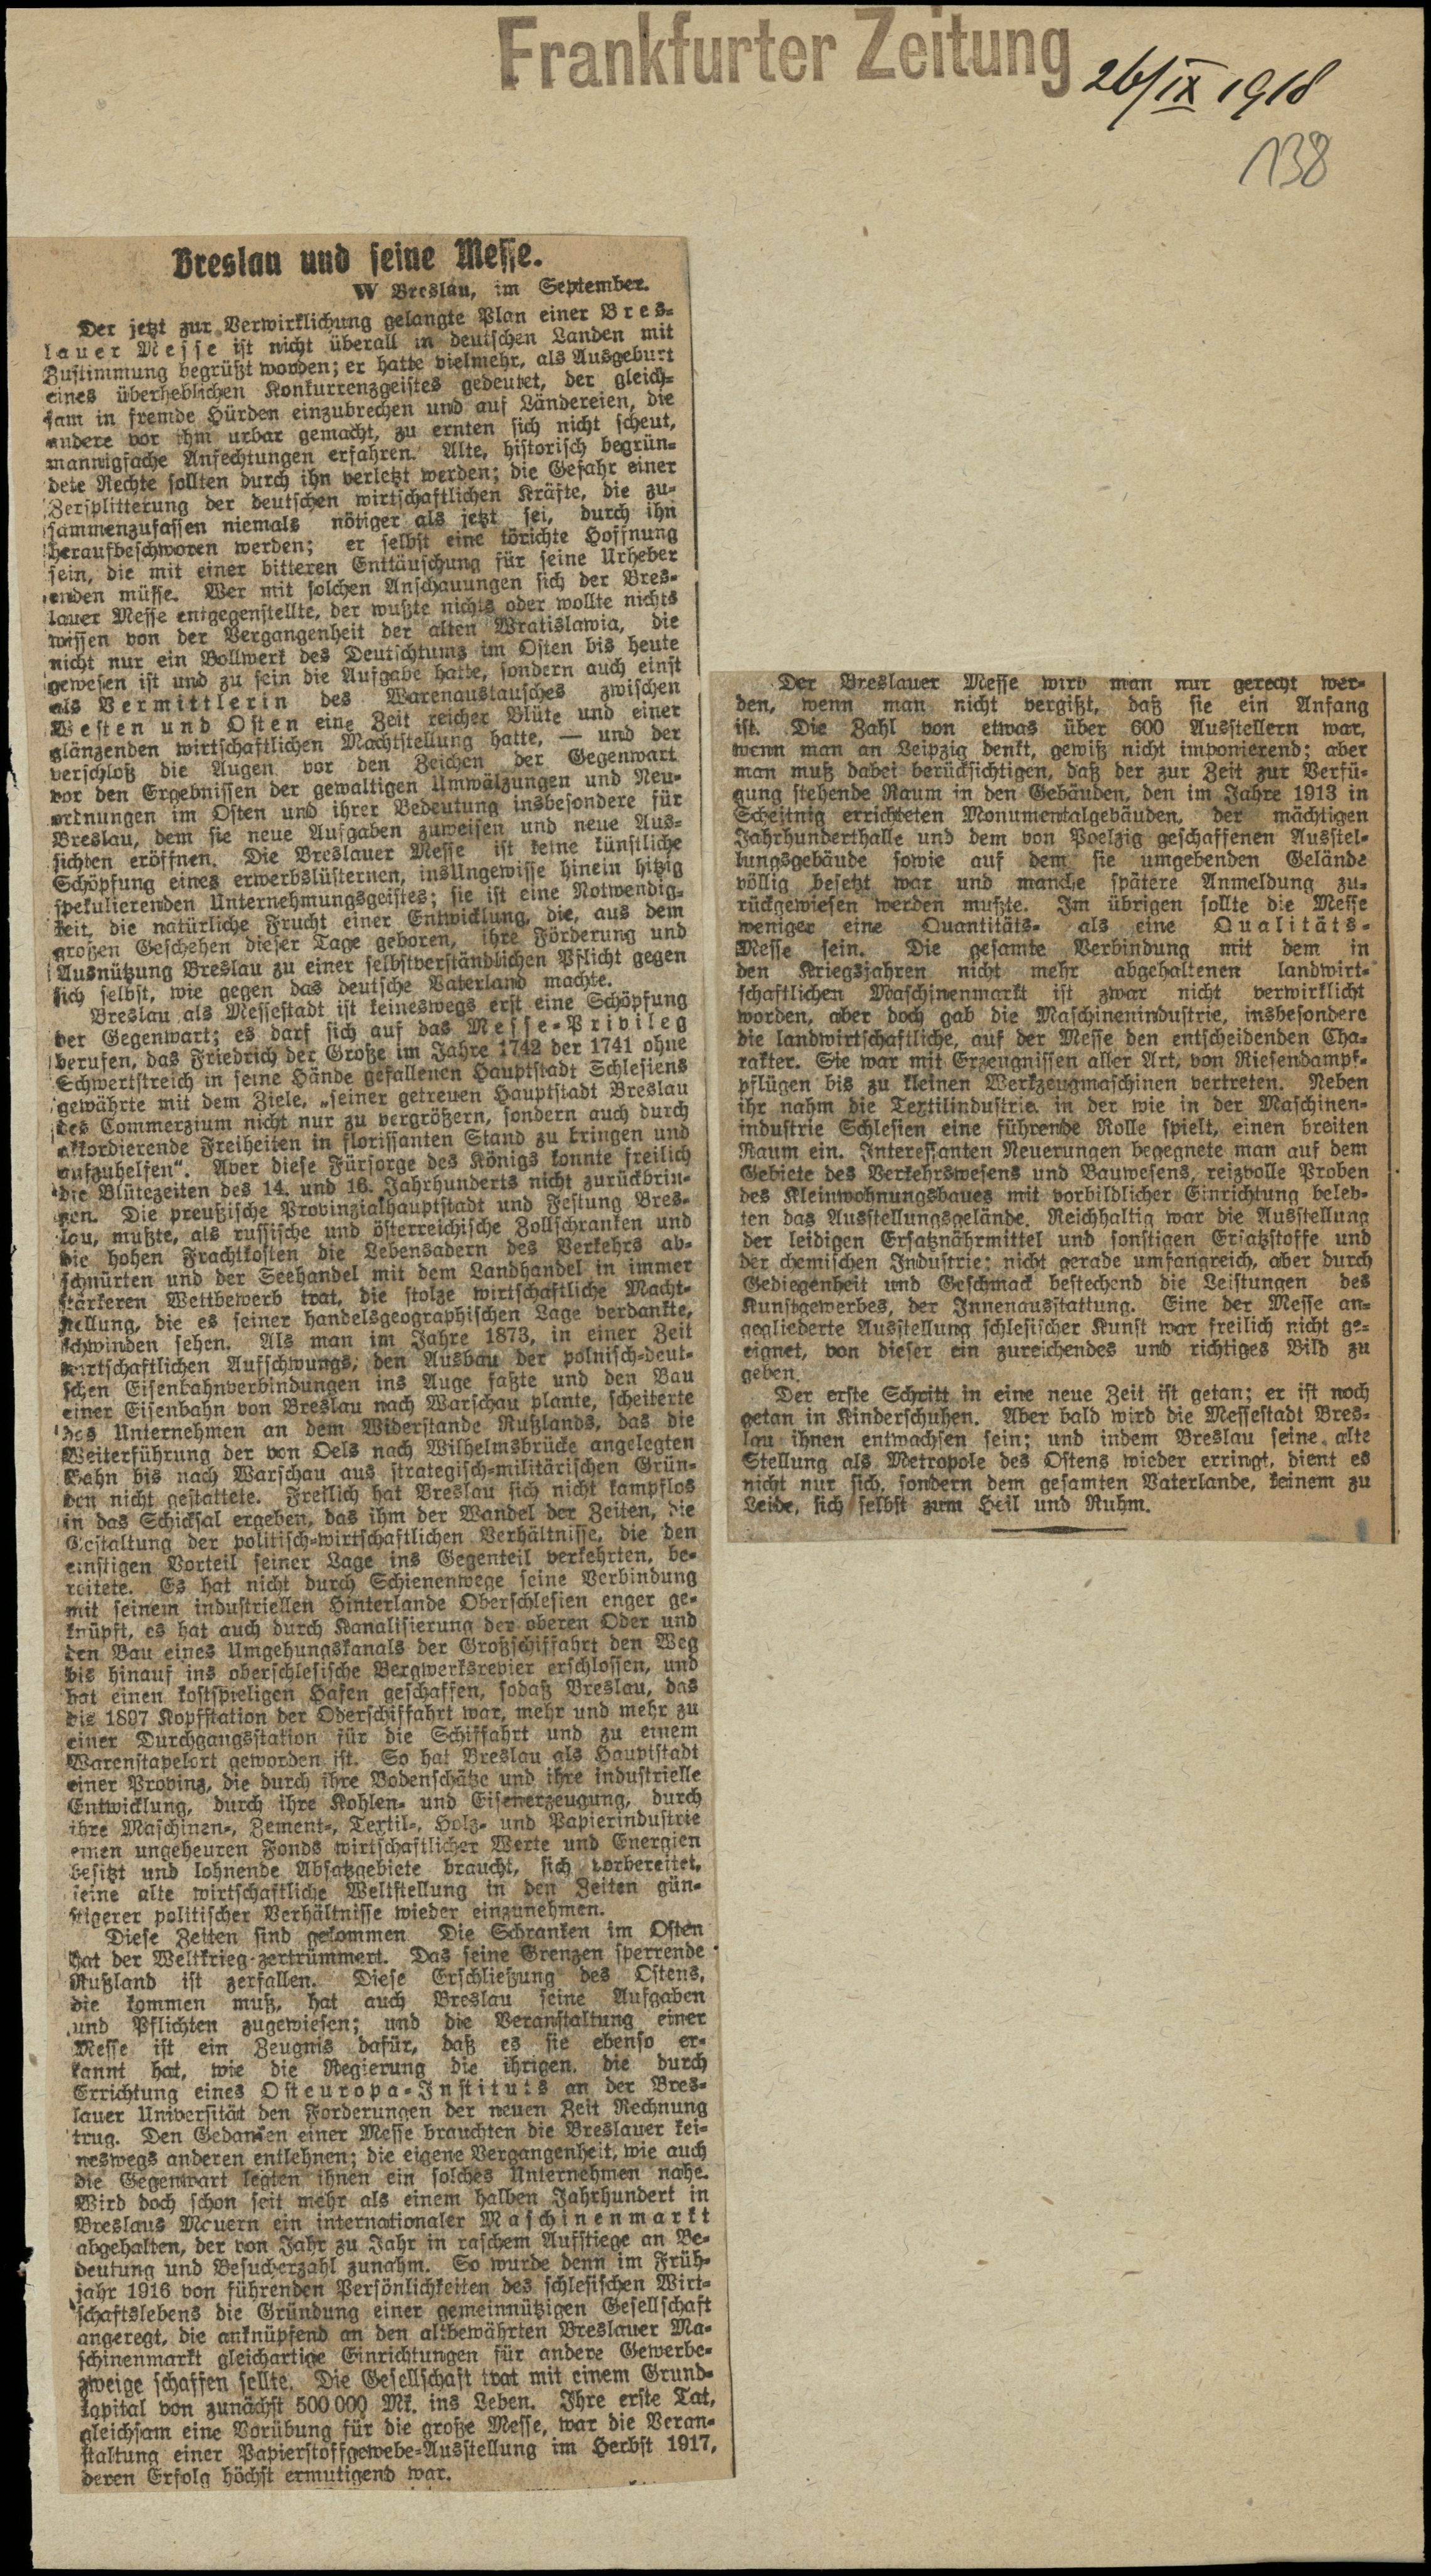 Frankfurter Zeitung
26/IX 1918
138
Breslau und seine Messe.
W Breslau, im September.
Der jetzt zur Verwirklichung gelangte Plan einer Bres-
lauer Messe ist nicht überall in deutschen Landen mit
Zustimmung begrüßt worden; er hatte vielmehr, als Ausgeburt
eines überheblichen Konkurrenzgeistes gedeutet, der gleich-
sam in fremde Hürden einzubrechen und auf Ländereien, die
andere vor ihm urbar gemacht, zu ernten sich nicht scheut,
mannigfache Anfechtungen erfahren. Alte, historisch begrün-
dete Rechte sollten durch ihn verletzt werden; die Gefahr einer
Zersplitterung der deutschen wirtschaftlichen Kräfte, die zu-
sammenzufassen niemals nötiger als jetzt sei, durch ihn
heraufbeschworen werden; er selbst eine törichte Hoffnung
sein, die mit einer bitteren Enttäuschung für seine Urheber
enden müsse. Wer mit solchen Anschauungen sich der Bres-
lauer Messe entgegenstellte, der wußte nichts oder wollte nichts
wissen von der Vergangenheit der alten Wratislawia, die
nicht nur ein Bollwerk des Deutschtums im Osten bis heute
gewesen ist und zu sein die Aufgabe hatte, sondern auch einst
als Vermittlerin des Warenaustausches zwischen
Westen und Osten eine Zeit reicher Blüte und einer
glänzenden wirtschaftlichen Machtstellung hatte, — und der
verschloß die Augen vor den Zeichen der Gegenwart
vor den Ergebnissen der gewaltigen Umwälzungen und Neu-
ordnungen im Osten und ihrer Bedeutung insbesondere für
Breslau, dem sie neue Aufgaben zuweisen und neue Aus-
sichten eröffnen. Die Breslauer Messe ist keine künstliche
Schöpfung eines erwerbslüsternen, ins Ungewisse hinein hitzig
spekulierenden Unternehmungsgeistes; sie ist eine Notwendig-
keit, die natürliche Frucht einer Entwicklung, die, aus dem
großen Geschehen dieser Tage geboren, ihre Förderung und
Ausnützung Breslau zu einer selbstverständlichen Pflicht gegen
sich selbst, wie gegen das deutsche Vaterland machte.
Breslau als Messestadt ist keineswegs erst eine Schöpfung
der Gegenwart; es darf sich auf das Messe-Privileg
berufen, das Friedrich der Große im Jahre 1742 der 1741 ohne
Schwertstreich in seine Hände gefallenen Hauptstadt Schlesiens
gewährte mit dem Ziele, „seiner getreuen Hauptstadt Breslau
des Commerzium nicht nur zu vergrößern, sondern auch durch
akkordierende Freiheiten in florissanten Stand zu bringen und
aufzuhelfen“. Aber diese Fürsorge des Königs konnte freilich
die Blütezeiten des 14. und 16. Jahrhunderts nicht zurückbrin-
gen. Die preußische Provinzialhauptstadt und Festung Bres-
lau, mußte, als russische und österreichische Zollschranken und
die hohen Frachtkosten die Lebensadern des Verkehrs ab-
schnürten und der Seehandel mit dem Landhandel in immer
stärkeren Wettbewerb trat, die stolze wirtschaftliche Macht-
stellung, die es seiner handelsgeographischen Lage verdankte,
schwinden sehen. Als man im Jahre 1873, in einer Zeit
wirtschaftlichen Aufschwungs, den Ausbau der polnisch-deut-
schen Eisenbahnverbindungen ins Auge faßte und den Bau
einer Eisenbahn von Breslau nach Warschau plante, scheiterte
des Unternehmen an dem Widerstande Rußlands, das die
Weiterführung der von Oels nach Wilhelmsbrücke angelegten
Bahn bis nach Warschau aus strategisch-militärischen Grün-
den nicht gestattete. Freilich hat Breslau sich nicht kampflos
in das Schicksal ergeben, das ihm der Wandel der Zeiten, die
Gestaltung der politisch-wirtschaftlichen Verhältnisse, die den
einstigen Vorteil seiner Lage ins Gegenteil verkehrten, be-
reitete. Es hat nicht durch Schienenwege seine Verbindung
mit seinem industriellen Hinterlande Oberschlesien enger ge-
knüpft, es hat auch durch Kanalisierung der oberen Oder und
den Bau eines Umgehungskanals der Großschiffahrt den Weg
bis hinauf ins oberschlesische Bergwerksrevier erschlossen, und
hat einen kostspieligen Hafen geschaffen, sodaß Breslau, das
bis 1897 Kopfstation der Oderschiffahrt war, mehr und mehr zu
einer Durchgangsstation für die Schiffahrt und zu einem
Warenstapelort geworden ist. So hat Breslau als Hauptstadt
einer Provinz, die durch ihre Bodenschätze und ihre industrielle
Entwicklung, durch ihre Kohlen- und Eisenerzeugung, durch
ihre Maschinen-, Zement-, Textil-, Holz- und Papierindustrie
einen ungeheuren Fonds wirtschaftlicher Werte und Energien
besitzt und lohnende Absatzgebiete braucht, sich vorbereitet,
seine alte wirtschaftliche Weltstellung in den Zeiten gün-
stigerer politischer Verhältnisse wieder einzunehmen.
Diese Zeiten sind gekommen. Die Schranken im Osten
hat der Weltkrieg zertrümmert. Das seine Grenzen sperrende
Rußland ist zerfallen. Diese Erschließung des Ostens,
die kommen muß, hat auch Breslau seine Aufgaben
und Pflichten zugewiesen; und die Veranstaltung einer
Messe ist ein Zeugnis dafür, daß es sie ebenso er-
kannt hat, wie die Regierung die ihrigen, die durch
Errichtung eines Osteuropa-Instituts an der Bres-
lauer Universität den Forderungen der neuen Zeit Rechnung
trug. Den Gedanken einer Messe brauchten die Breslauer kei-
neswegs anderen entlehnen; die eigene Vergangenheit, wie auch
die Gegenwart legten ihnen ein solches Unternehmen nahe.
Wird doch schon seit mehr als einem halben Jahrhundert in
Breslaus Mauern ein internationaler Maschinenmarkt
abgehalten, der von Jahr zu Jahr in raschem Aufstiege an Be-
deutung und Besucherzahl zunahm. So wurde denn im Früh-
jahr 1916 von führenden Persönlichkeiten des schlesischen Wirt-
schaftslebens die Gründung einer gemeinnützigen Gesellschaft
angeregt, die anknüpfend an den altbewährten Breslauer Ma-
schinenmarkt gleichartige Einrichtungen für andere Gewerbe-
zweige schaffen sollte. Die Gesellschaft trat mit einem Grund-
kapital von zunächst 500 000 Mk. ins Leben. Ihre erste Tat,
gleichsam eine Vorübung für die große Messe, war die Veran-
staltung einer Papierstoffgewebe-Ausstellung im Herbst 1917,
deren Erfolg höchst ermutigend war.
Der Breslauer Messe wird man nur gerecht wer-
den, wenn man nicht vergißt, daß sie ein Anfang
ist. Die Zahl von etwas über 600 Ausstellern war,
wenn man an Leipzig denkt, gewiß nicht imponierend; aber
man muß dabei berücksichtigen, daß der zur Zeit zur Verfü-
gung stehende Raum in den Gebäuden, den im Jahre 1913 in
Scheitnig errichteten Monumentalgebäuden, der mächtigen
Jahrhunderthalle und dem von Poelzig geschaffenen Ausstel-
lungsgebäude sowie auf dem sie umgebenden Gelände
völlig besetzt war und manche spätere Anmeldung zu-
rückgewiesen werden mußte. Im übrigen sollte die Messe
weniger eine Quantitäts- als eine Qualitäts-
Messe sein. Die gesamte Verbindung mit dem in
den Kriegsjahren nicht mehr abgehaltenen landwirt-
schaftlichen Maschinenmarkt ist zwar nicht verwirklicht
worden, aber doch gab die Maschinenindustrie, insbesondere
die landwirtschaftliche, auf der Messe den entscheidenden Cha-
rakter. Sie war mit Erzeugnissen aller Art, von Riesendampf-
pflügen bis zu kleinen Werkzeugmaschinen vertreten. Neben
ihr nahm die Textilindustrie, in der wie in der Maschinen-
industrie Schlesien eine führende Rolle spielt, einen breiten
Raum ein. Interessanten Neuerungen begegnete man auf dem
Gebiete des Verkehrswesens und Bauwesens, reizvolle Proben
des Kleinwohnungsbaues mit vorbildlicher Einrichtung beleb-
ten das Ausstellungsgelände. Reichhaltig war die Ausstellung
der leidigen Ersatznährmittel und sonstigen Ersatzstoffe und
der chemischen Industrie; nicht gerade umfangreich, aber durch
Gediegenheit und Geschmack bestechend die Leistungen des
Kunstgewerbes, der Innenausstattung. Eine der Messe an-
gegliederte Ausstellung schlesischer Kunst war freilich nicht ge-
eignet, von dieser ein zureichendes und richtiges Bild zu
geben.
Der erste Schritt in eine neue Zeit ist getan; er ist noch
getan in Kinderschuhen. Aber bald wird die Messestadt Bres-
lau ihnen entwachsen sein; und indem Breslau seine alte
Stellung als Metropole des Ostens wieder erringt, dient es
nicht nur sich, sondern dem gesamten Vaterlande, keinem zu
Leide, sich selbst zum Heil und Ruhm.